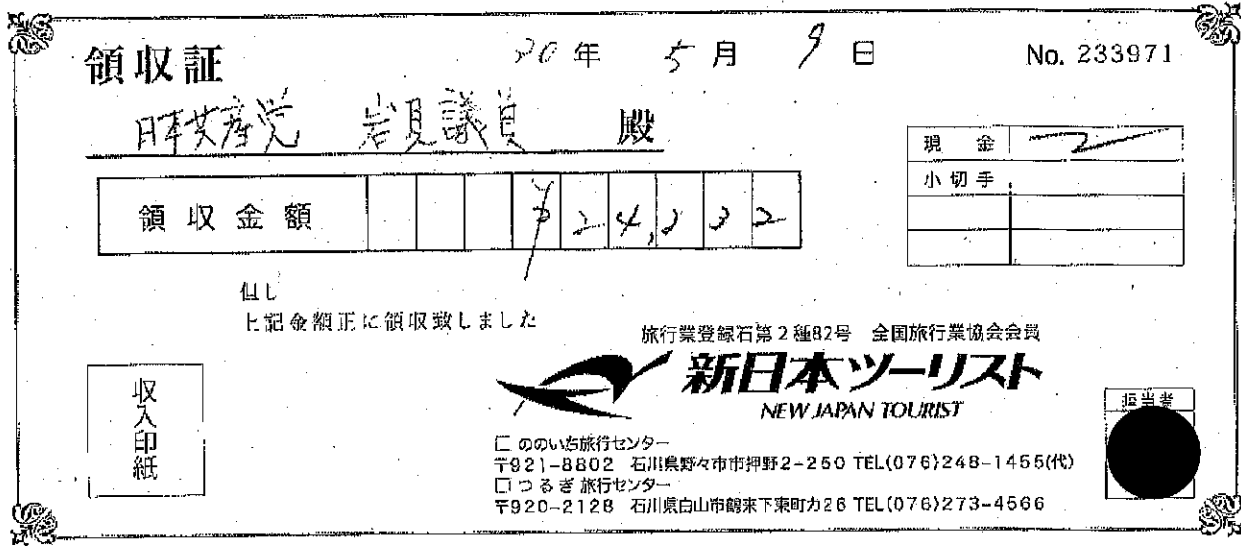 領収証
20年 5月 9日
No. 233971
日本共産党 岩見議員 殿
現金
小切手
領収金額 ¥24,232
但し
上記金額正に領収致しました
旅行業登録石第2種82号 全国旅行業協会会員
新日本ツーリスト
NEW JAPAN TOURIST
収入印紙
担当者
□ ののいち旅行センター
〒921-8802 石川県野々市市押野2-250 TEL(076)248-1455(代)
□ つるぎ旅行センター
〒920-2128 石川県白山市鶴来下東町カ26 TEL(076)273-4566